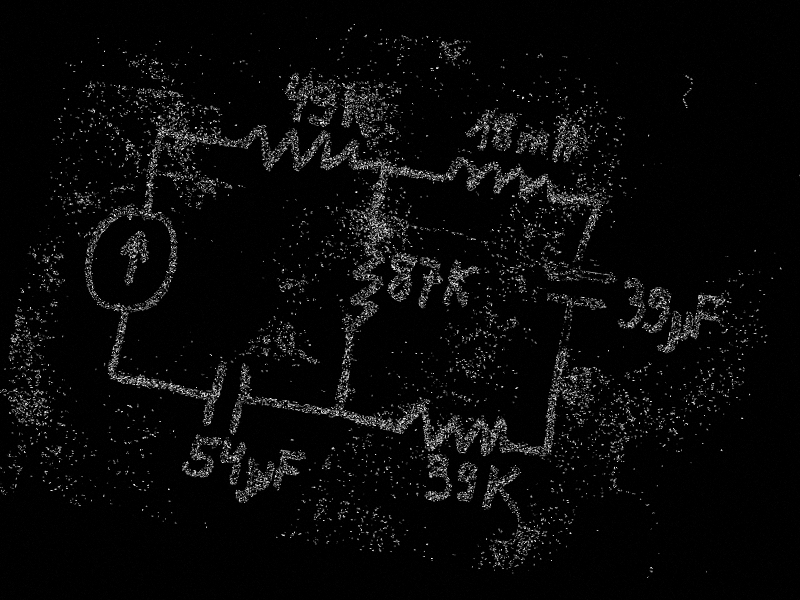 18mH
87K
39µF
54µF
39K